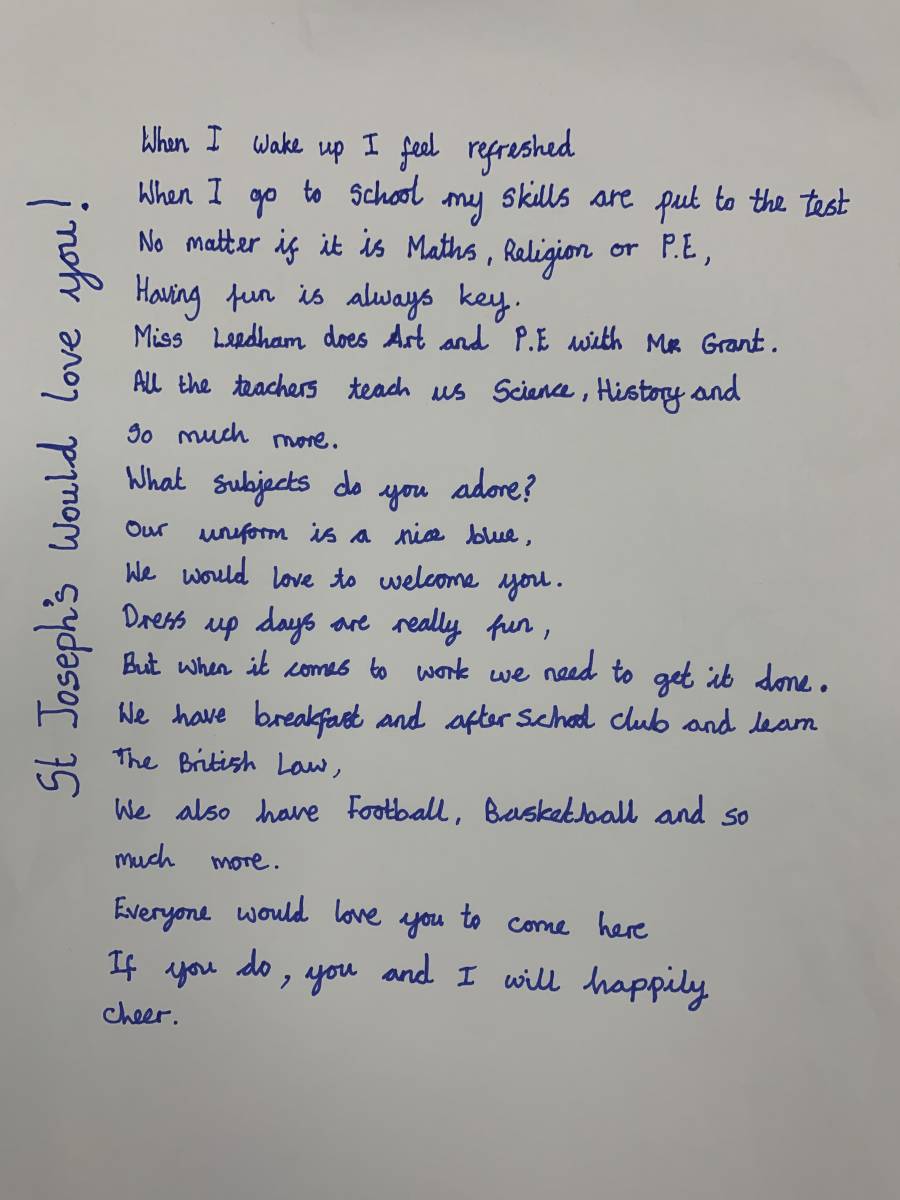 St Joseph's Would Love you!
When I wake up I feel refreshed
When I go to school my skills are put to the test
No matter if it is Maths, Religion or P.E,
Having fun is always key.
Miss Leedham does Art and P.E with Mr Grant.
All the teachers teach us Science, History and
so much more.
What subjects do you adore?
Our uniform is a nice blue,
We would love to welcome you.
Dress up days are really fun,
But when it comes to work we need to get it done.
We have breakfast and after school club and learn
The British Law,
We also have Football, Basketball and so
much more.
Everyone would love you to come here
If you do, you and I will happily
cheer.